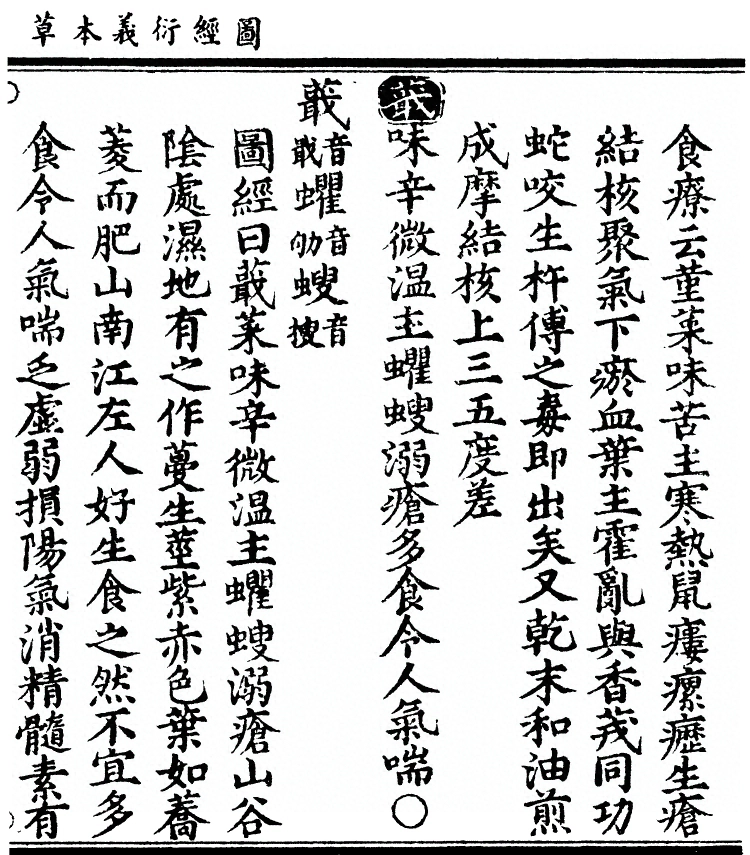 圖經衍義本草
食療云菫菜味苦主寒熱鼠瘻瘰癧生瘡
結核聚氣下瘀血葉主霍亂與香茙同功
蛇咬生杵傅之毒即出矣又乾末和油煎
成摩結核上三五度差
蕺味辛微溫主蠷螋溺瘡多食令人氣喘○
蕺音戢蠷音劬螋音搜
圖經曰蕺菜味辛微溫主蠷螋溺瘡山谷
陰處濕地有之作蔓生莖紫赤色葉如蕎
菱而肥山南江左人好生食之然不宜多
食令人氣喘乏虛弱損陽氣消精髓素有